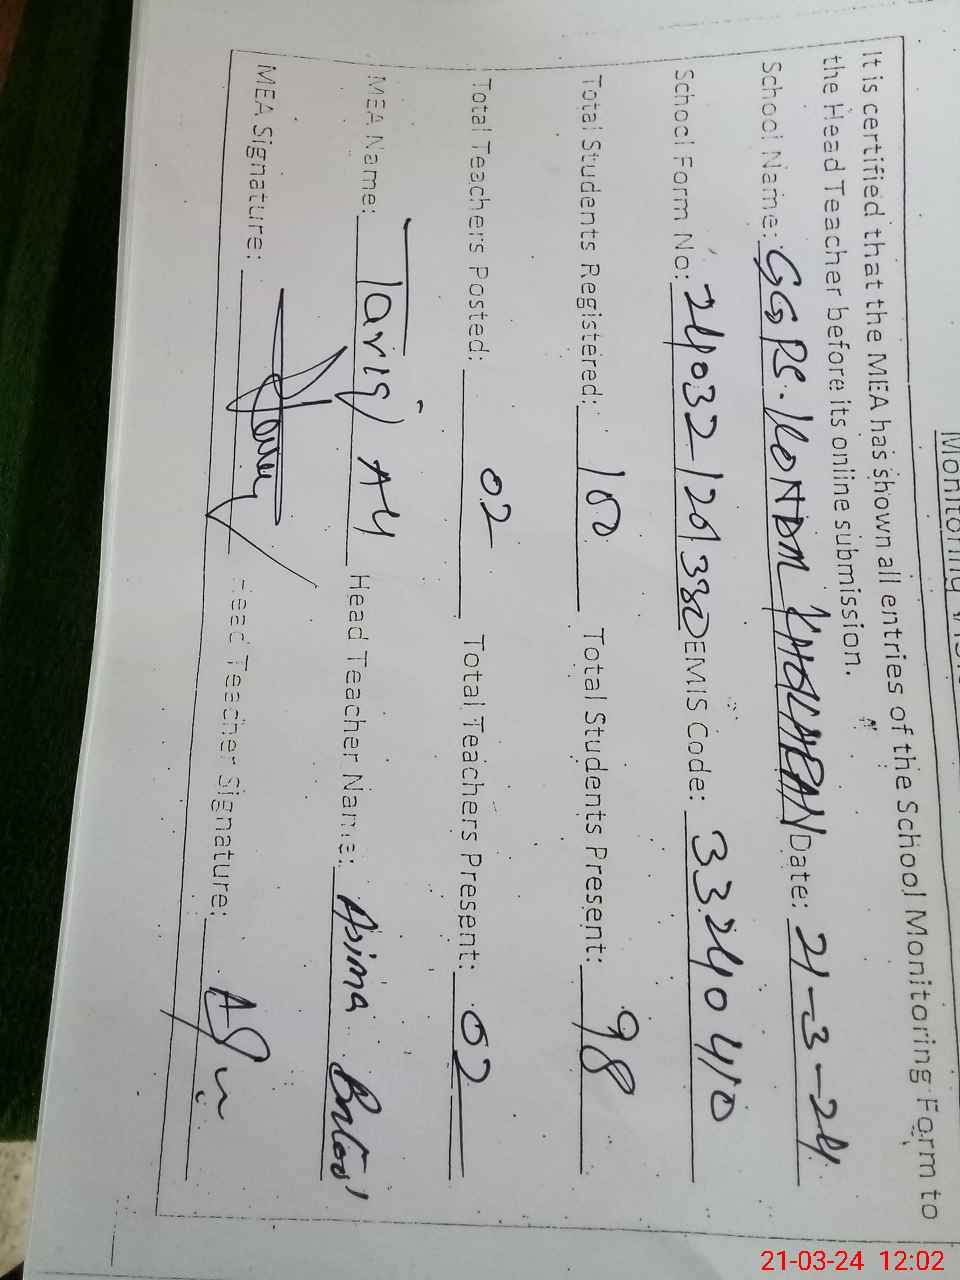 Monitoring
It is certified that the MEA has shown all entries of the School Monitoring Form to
the Head Teacher before its online submission.
School Name: GGPS. KONDM Date: 21-3-24
School Form No: EMIS Code: 33240410
Total Students Registered: 100 Total Students Present: 98
Total Teachers Posted: 02 Total Teachers Present: 02
MEA Name: Tariq Ali Head Teacher Name: Asima Batool
MEA Signature: Head Teacher Signature:
21-03-24 12:02